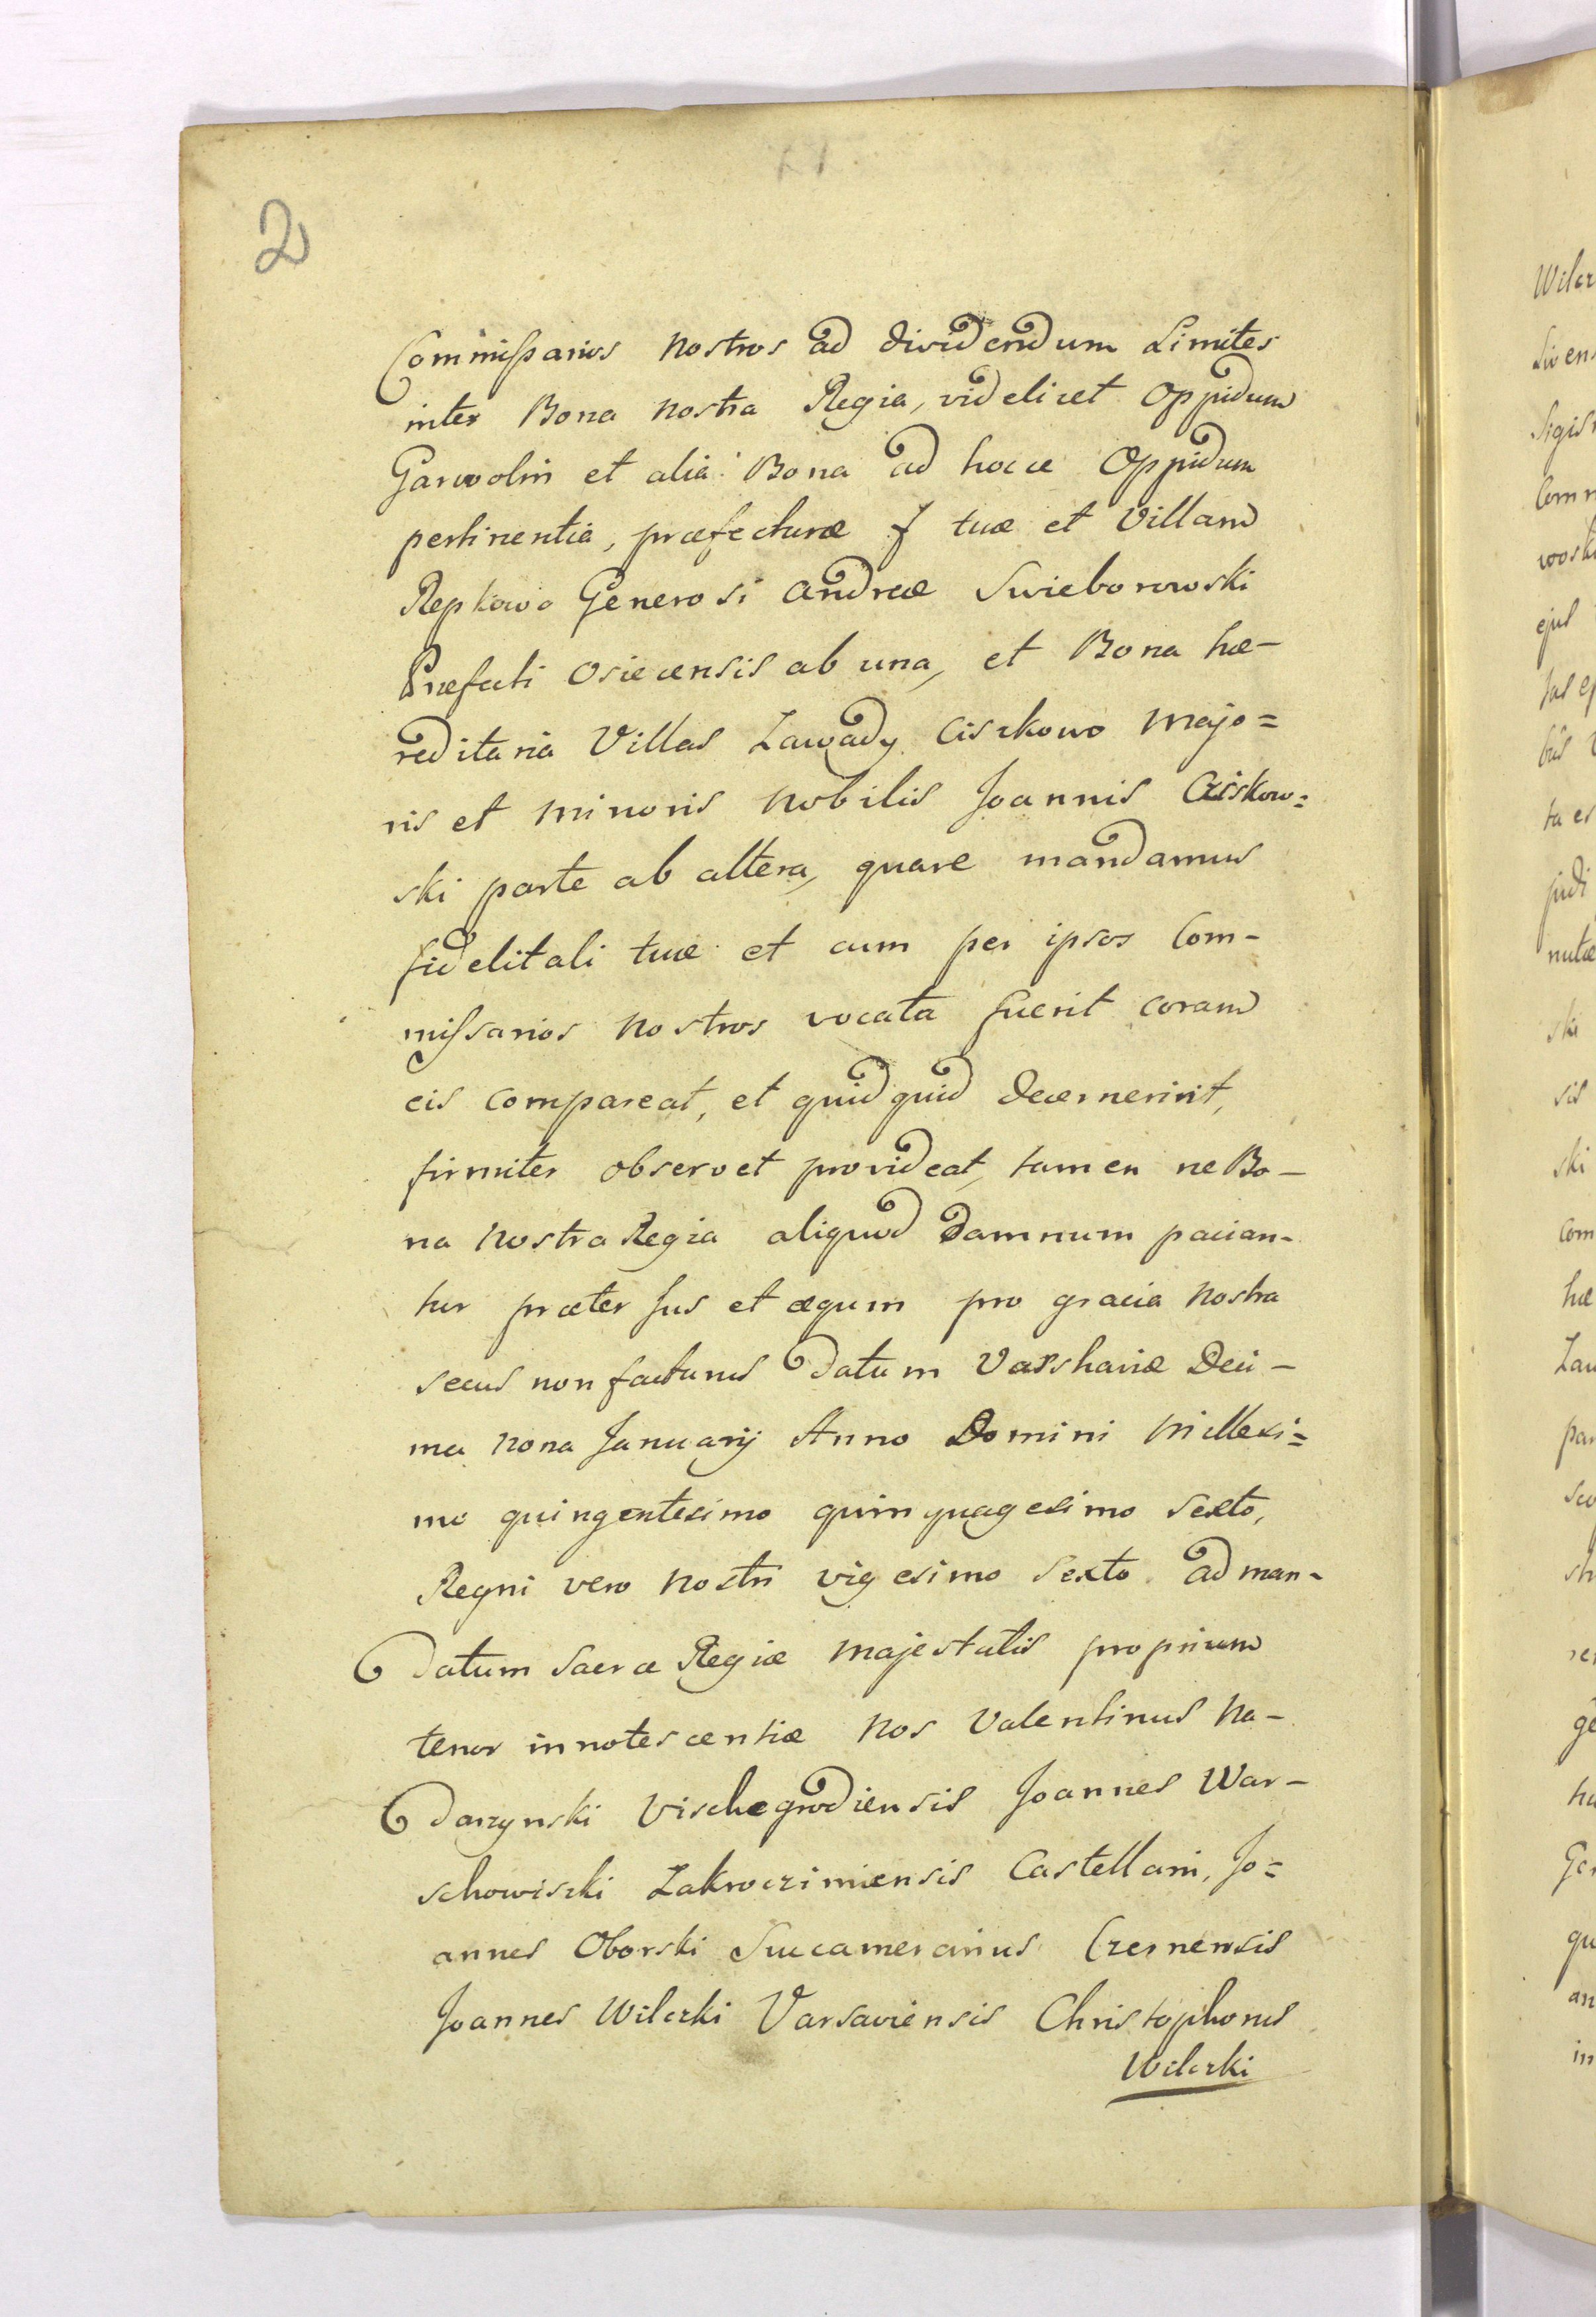 2
Commissarios Nostros ad dividendum Limites
inter Bona Nostra Regia, videlicet Oppidum
Garwolin et alia Bona ad hocce Oppidum
pertinentia, præfecturæ f tuæ et Villam
Repkowo Generosi Andreæ Swieborowski
Præfecti Osiecensis ab una, et Bona hæ-
reditaria Villas Zawady Ciszkowo Majo=
ris et Minoris Nobilis Joannis Ciskow=
ski parte ab altera, quare mandamus
fidelitati tuæ et cum per ipsos Com-
missarios Nostros vocata fuerit coram
eis compareat, et quidquid decernerint,
firmiter observet provideat, tamen ne Bo-
na Nostra Regia aliquod damnum pacian-
tur præter Jus et æqum pro gracia Nostra
secus non facturus Datum Varshaviæ Deci-
ma Nona Januarij Anno Domini Millesi=
mo quingentesimo quinquagesimo Sexto,
Regni vero Nostri vigesimo Sexto. Ad man-
datum Sacræ Regiæ Majestatis proprium
tenor innotescentiæ Nos Valentinus Na-
darzynski Vischegrodiensis Joannes War-
schowiszki Zakroczimiensis Castellani, Jo=
annes Oborski Succamerarius Czernensis
Joannes Wilczki Varsaviensis Christophorus
Wilczki